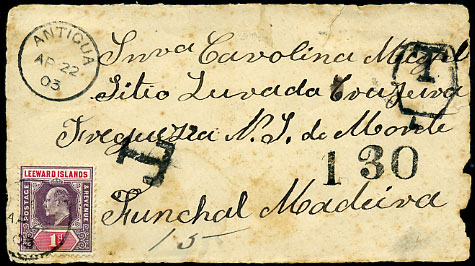 ANTIGUA
AP 22
03
Snra Carolina
T
Sitio Levada
Freguezia N. S. do Monte
T
130
Funchal Madeira
15
LEEWARD ISLANDS
POSTAGE
& REVENUE
1d